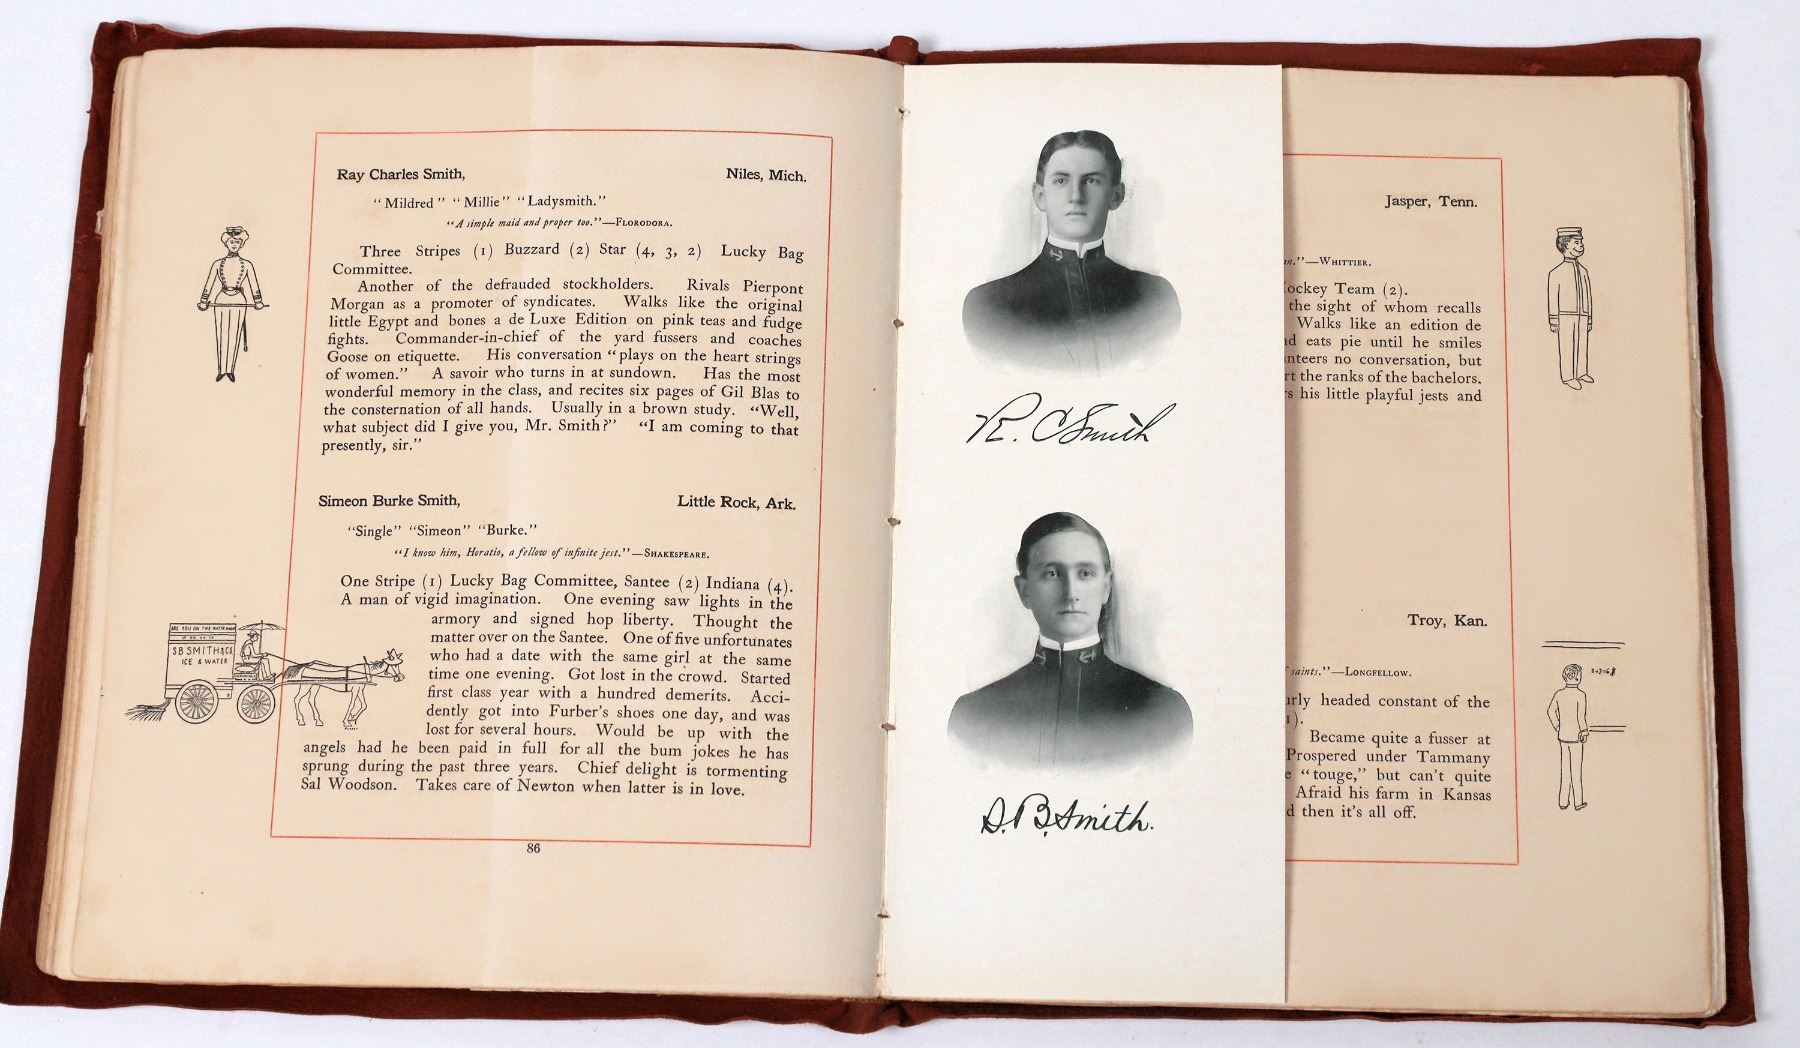 Ray Charles Smith, Niles, Mich.
"Mildred" "Millie" "Ladysmith."
"A simple maid and proper too."—FLORODORA.
Three Stripes (1) Buzzard (2) Star (4, 3, 2) Lucky Bag
Committee.
Another of the defrauded stockholders. Rivals Pierpont
Morgan as a promoter of syndicates. Walks like the original
little Egypt and bones a de Luxe Edition on pink teas and fudge
fights. Commander-in-chief of the yard fussers and coaches
Goose on etiquette. His conversation "plays on the heart strings
of women." A savoir who turns in at sundown. Has the most
wonderful memory in the class, and recites six pages of Gil Blas to
the consternation of all hands. Usually in a brown study. "Well,
what subject did I give you, Mr. Smith?" "I am coming to that
presently, sir."
Simeon Burke Smith, Little Rock, Ark.
"Single" "Simeon" "Burke."
"I know him, Horatio, a fellow of infinite jest."—SHAKESPEARE.
One Stripe (1) Lucky Bag Committee, Santee (2) Indiana (4).
A man of vigid imagination. One evening saw lights in the
armory and signed hop liberty. Thought the
matter over on the Santee. One of five unfortunates
who had a date with the same girl at the same
time one evening. Got lost in the crowd. Started
first class year with a hundred demerits. Acci-
dently got into Furber's shoes one day, and was
lost for several hours. Would be up with the
angels had he been paid in full for all the bum jokes he has
sprung during the past three years. Chief delight is tormenting
Sal Woodson. Takes care of Newton when latter is in love.
ARE YOU ON THE WATER WAGON
S B SMITH & CO.
ICE & WATER
86
R. C Smith
S. B. Smith.
Jasper, Tenn.
"—WHITTIER.
ockey Team (2).
the sight of whom recalls
Walks like an edition de
d eats pie until he smiles
nteers no conversation, but
rt the ranks of the bachelors.
s his little playful jests and
Troy, Kan.
saints."—LONGFELLOW.
rly headed constant of the
1).
Became quite a fusser at
Prospered under Tammany
e "touge," but can't quite
Afraid his farm in Kansas
d then it's all off.